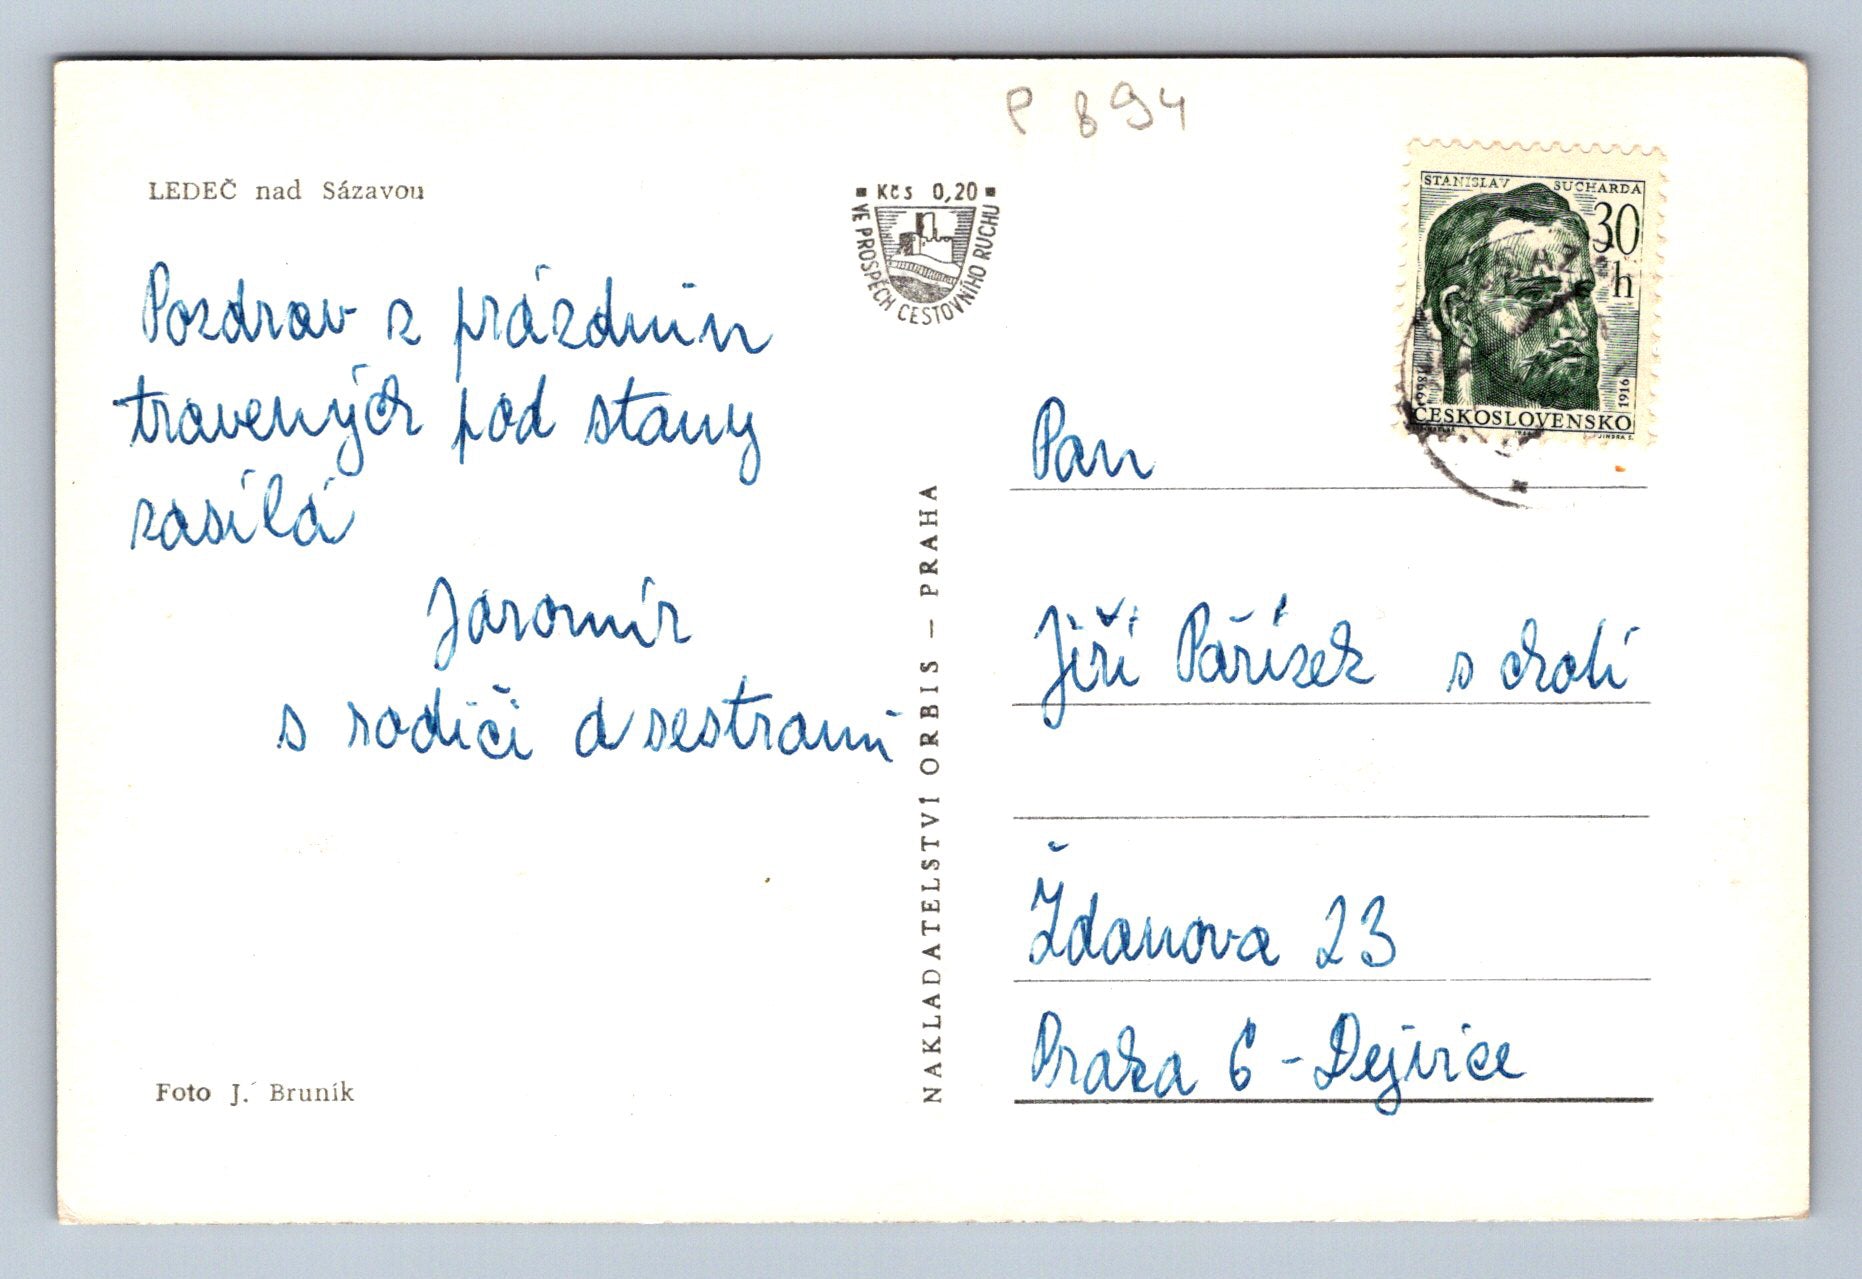 P 894
LEDEČ nad Sázavou
Kčs 0,20
VE PROSPĚCH CESTOVNÍHO RUCHU
STANISLAV SUCHARDA
30
h
1866
1916
ČESKOSLOVENSKO
JINDRA S.
Pozdrav z prázdnin
travených pod stany
zasílá
Jaromír
s rodiči a sestrami
NAKLADATELSTVÍ ORBIS – PRAHA
Pan
Jiří Pařízek s chotí
Ždanova 23
Praha 6 - Dejvice
Foto J. Bruník